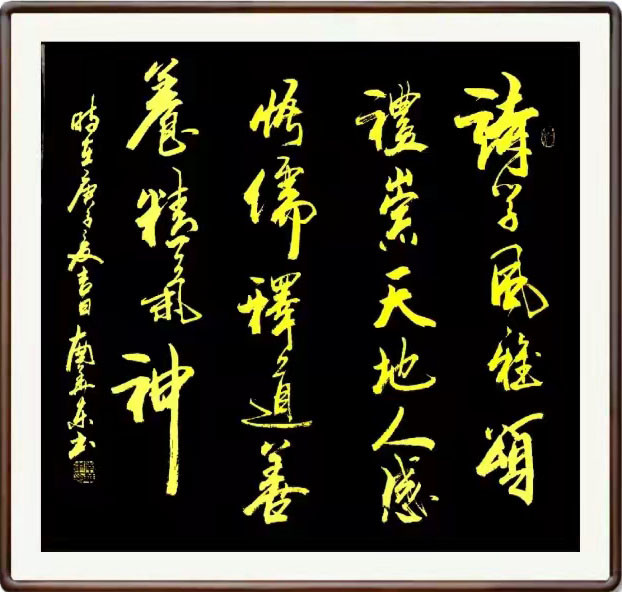 詩学風雅頌
禮崇天地人感
悟儒釋道善
養精氣神
時在庚子夏吉日書